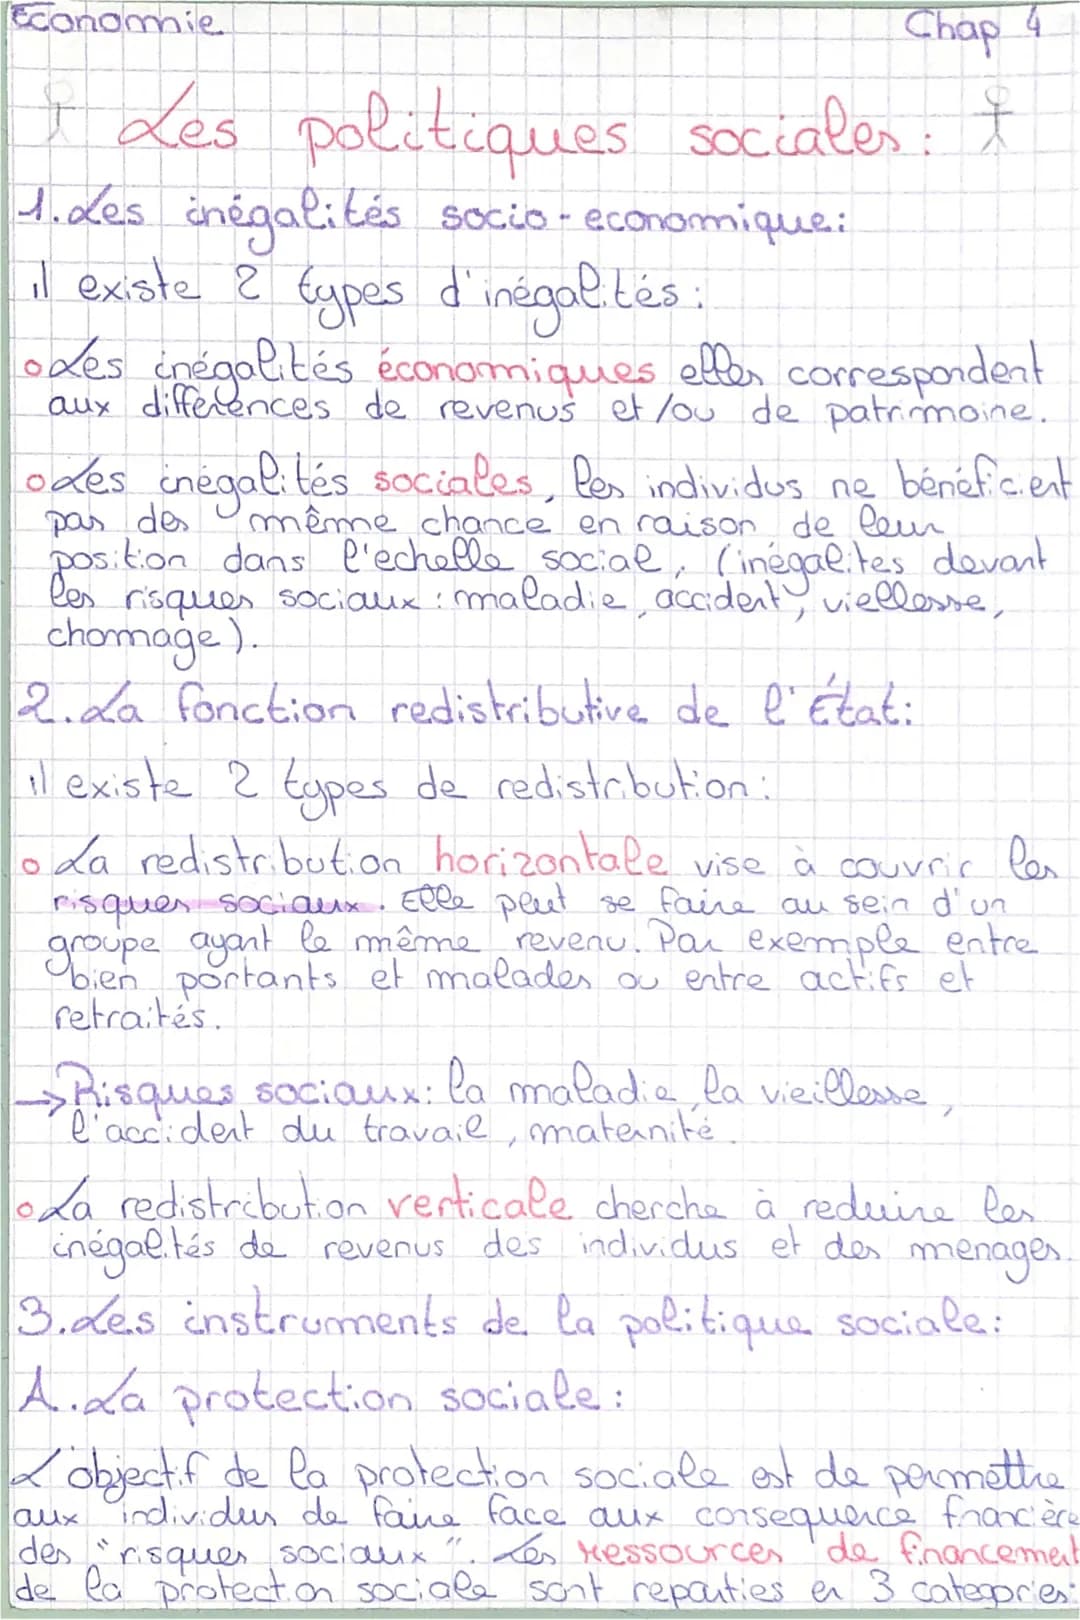 Economie Chap 4
Les politiques sociales :
1. Les inégalités socio-economique :
il existe 2 types d'inégalités :
Les inégalités économiques elles correspondent
aux différences de revenus et/ou de patrimoine.
Les inégalités sociales, les individus ne bénéficient
pas des même chance en raison de leur
position dans l'echelle social, (inégalites devant
les risques sociaux : maladie, accident, viellesse,
chomage).
2. La fonction redistributive de l'État :
il existe 2 types de redistribution :
La redistribution horizontale vise à couvrir les
risques sociaux. Elle peut se faire au sein d'un
groupe ayant le même revenu. Par exemple entre
bien portants et malades ou entre actifs et
retraités.
→ Risques sociaux : la maladie, la vieillesse,
l'accident du travail, maternité.
La redistribution verticale cherche à reduire les
inégalités de revenus des individus et des menages.
3. Les instruments de la politique sociale :
A. La protection sociale :
L'objectif de la protection sociale est de permettre
aux individus de faire face aux consequence financière
des "risques sociaux". Les ressources de financement
de la protection sociale sont reparties en 3 categories :